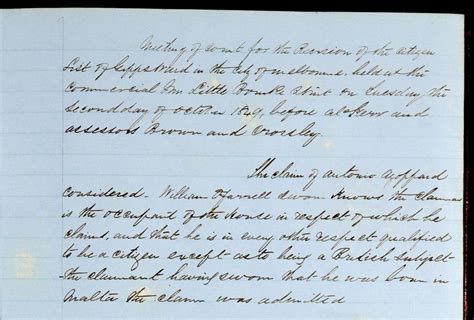 Meeting of Court for the Revision of the Citizen
List of Gipps Ward in the City of Melbourne, held at the
Commercial Inn Little Bourke Street on Tuesday the
Second day of October 1849, before Ald Kerr and
assessors Brown and Crossley.
The claim of Antonio Azoppard
considered - William O'Farrell sworn Knows the claimant
is the occupant of the House in respect of which he
claims, and that he is in every other respect qualified
to be a citizen except as to being a British subject
- the claimant having sworn that he was born in
Malta the claim was admitted